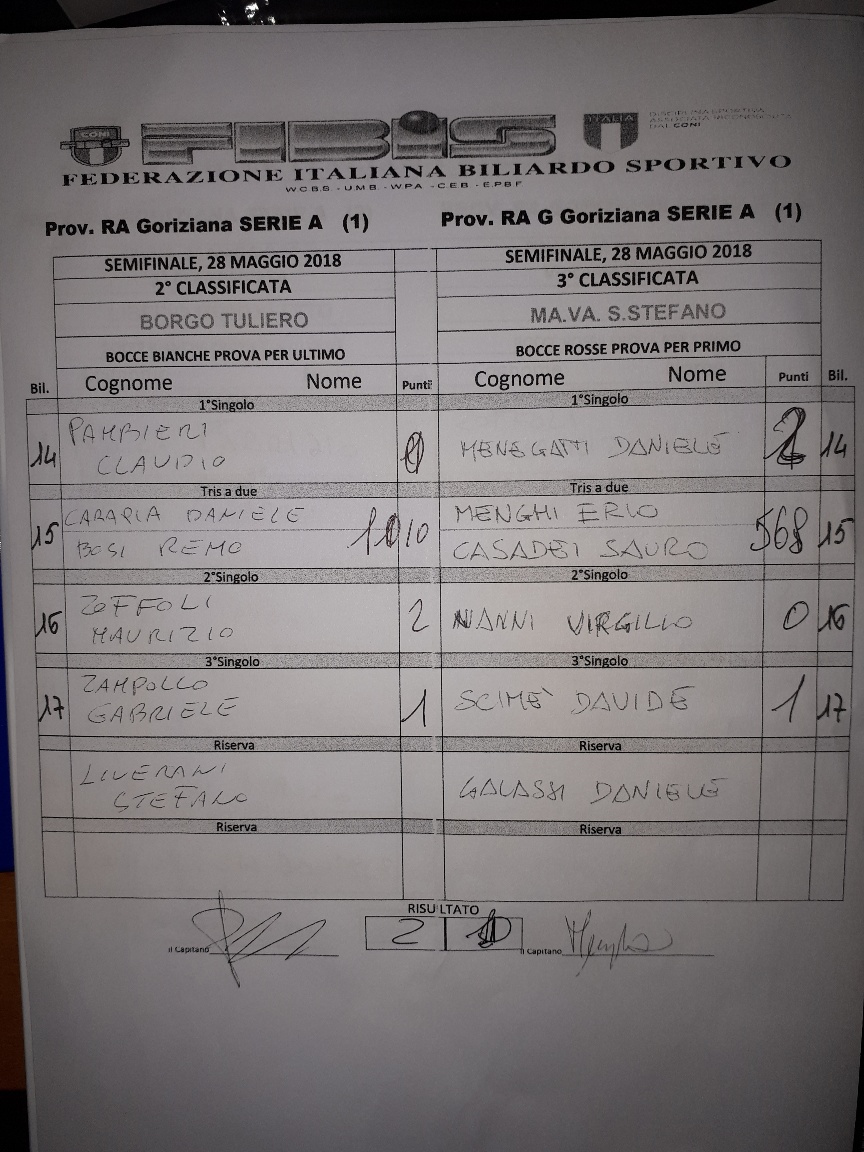 CONI
FIBiS
ITALIA
DISCIPLINA SPORTIVA
ASSOCIATA RICONOSCIUTA
DAL CONI
FEDERAZIONE ITALIANA BILIARDO SPORTIVO
WCBS - UMB - WPA - CEB - EPBF
Prov. RA Goriziana SERIE A (1) Prov. RA G Goriziana SERIE A (1)
SEMIFINALE, 28 MAGGIO 2018 SEMIFINALE, 28 MAGGIO 2018
2° CLASSIFICATA 3° CLASSIFICATA
BORGO TULIERO MA.VA. S.STEFANO
BOCCE BIANCHE PROVA PER ULTIMO BOCCE ROSSE PROVA PER PRIMO
Bil. Cognome Nome Punti Cognome Nome Punti Bil.
1°Singolo 1°Singolo
14 PAMBIERI CLAUDIO 0 MENEGATTI DANIELE 2 14
Tris a due Tris a due
CARAPIA DANIELE MENGHI ERIO
15 BOSI REMO 1010 CASADEI SAURO 568 15
2°Singolo 2°Singolo
16 ZOFFOLI MAURIZIO 2 NANNI VIRGILIO 0 16
3°Singolo 3°Singolo
17 ZAMPOLLO GABRIELE 1 SCIME' DAVIDE 1 17
Riserva Riserva
LIVERANI STEFANO GALASSI DANIELE
Riserva Riserva
RISULTATO
il Capitano 2 il Capitano